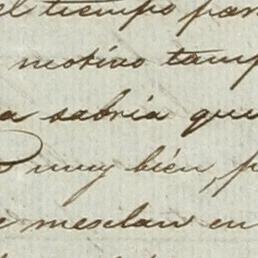 el tiempo
motivo
sabria que
muy bien,
mesclan en